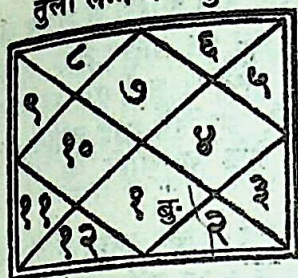 तुला लग्न
८ ६
९ ७ ५
१० ४
११ १ बु. ३
१२ २